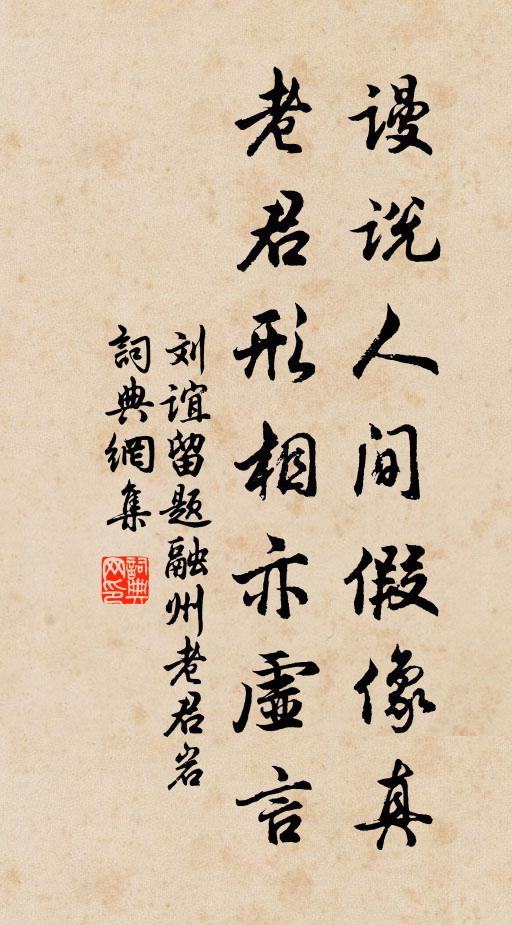 谩说人间假像真
老君形相亦虚言
刘谊留题融州老君岩
詞典網集
詞典網印